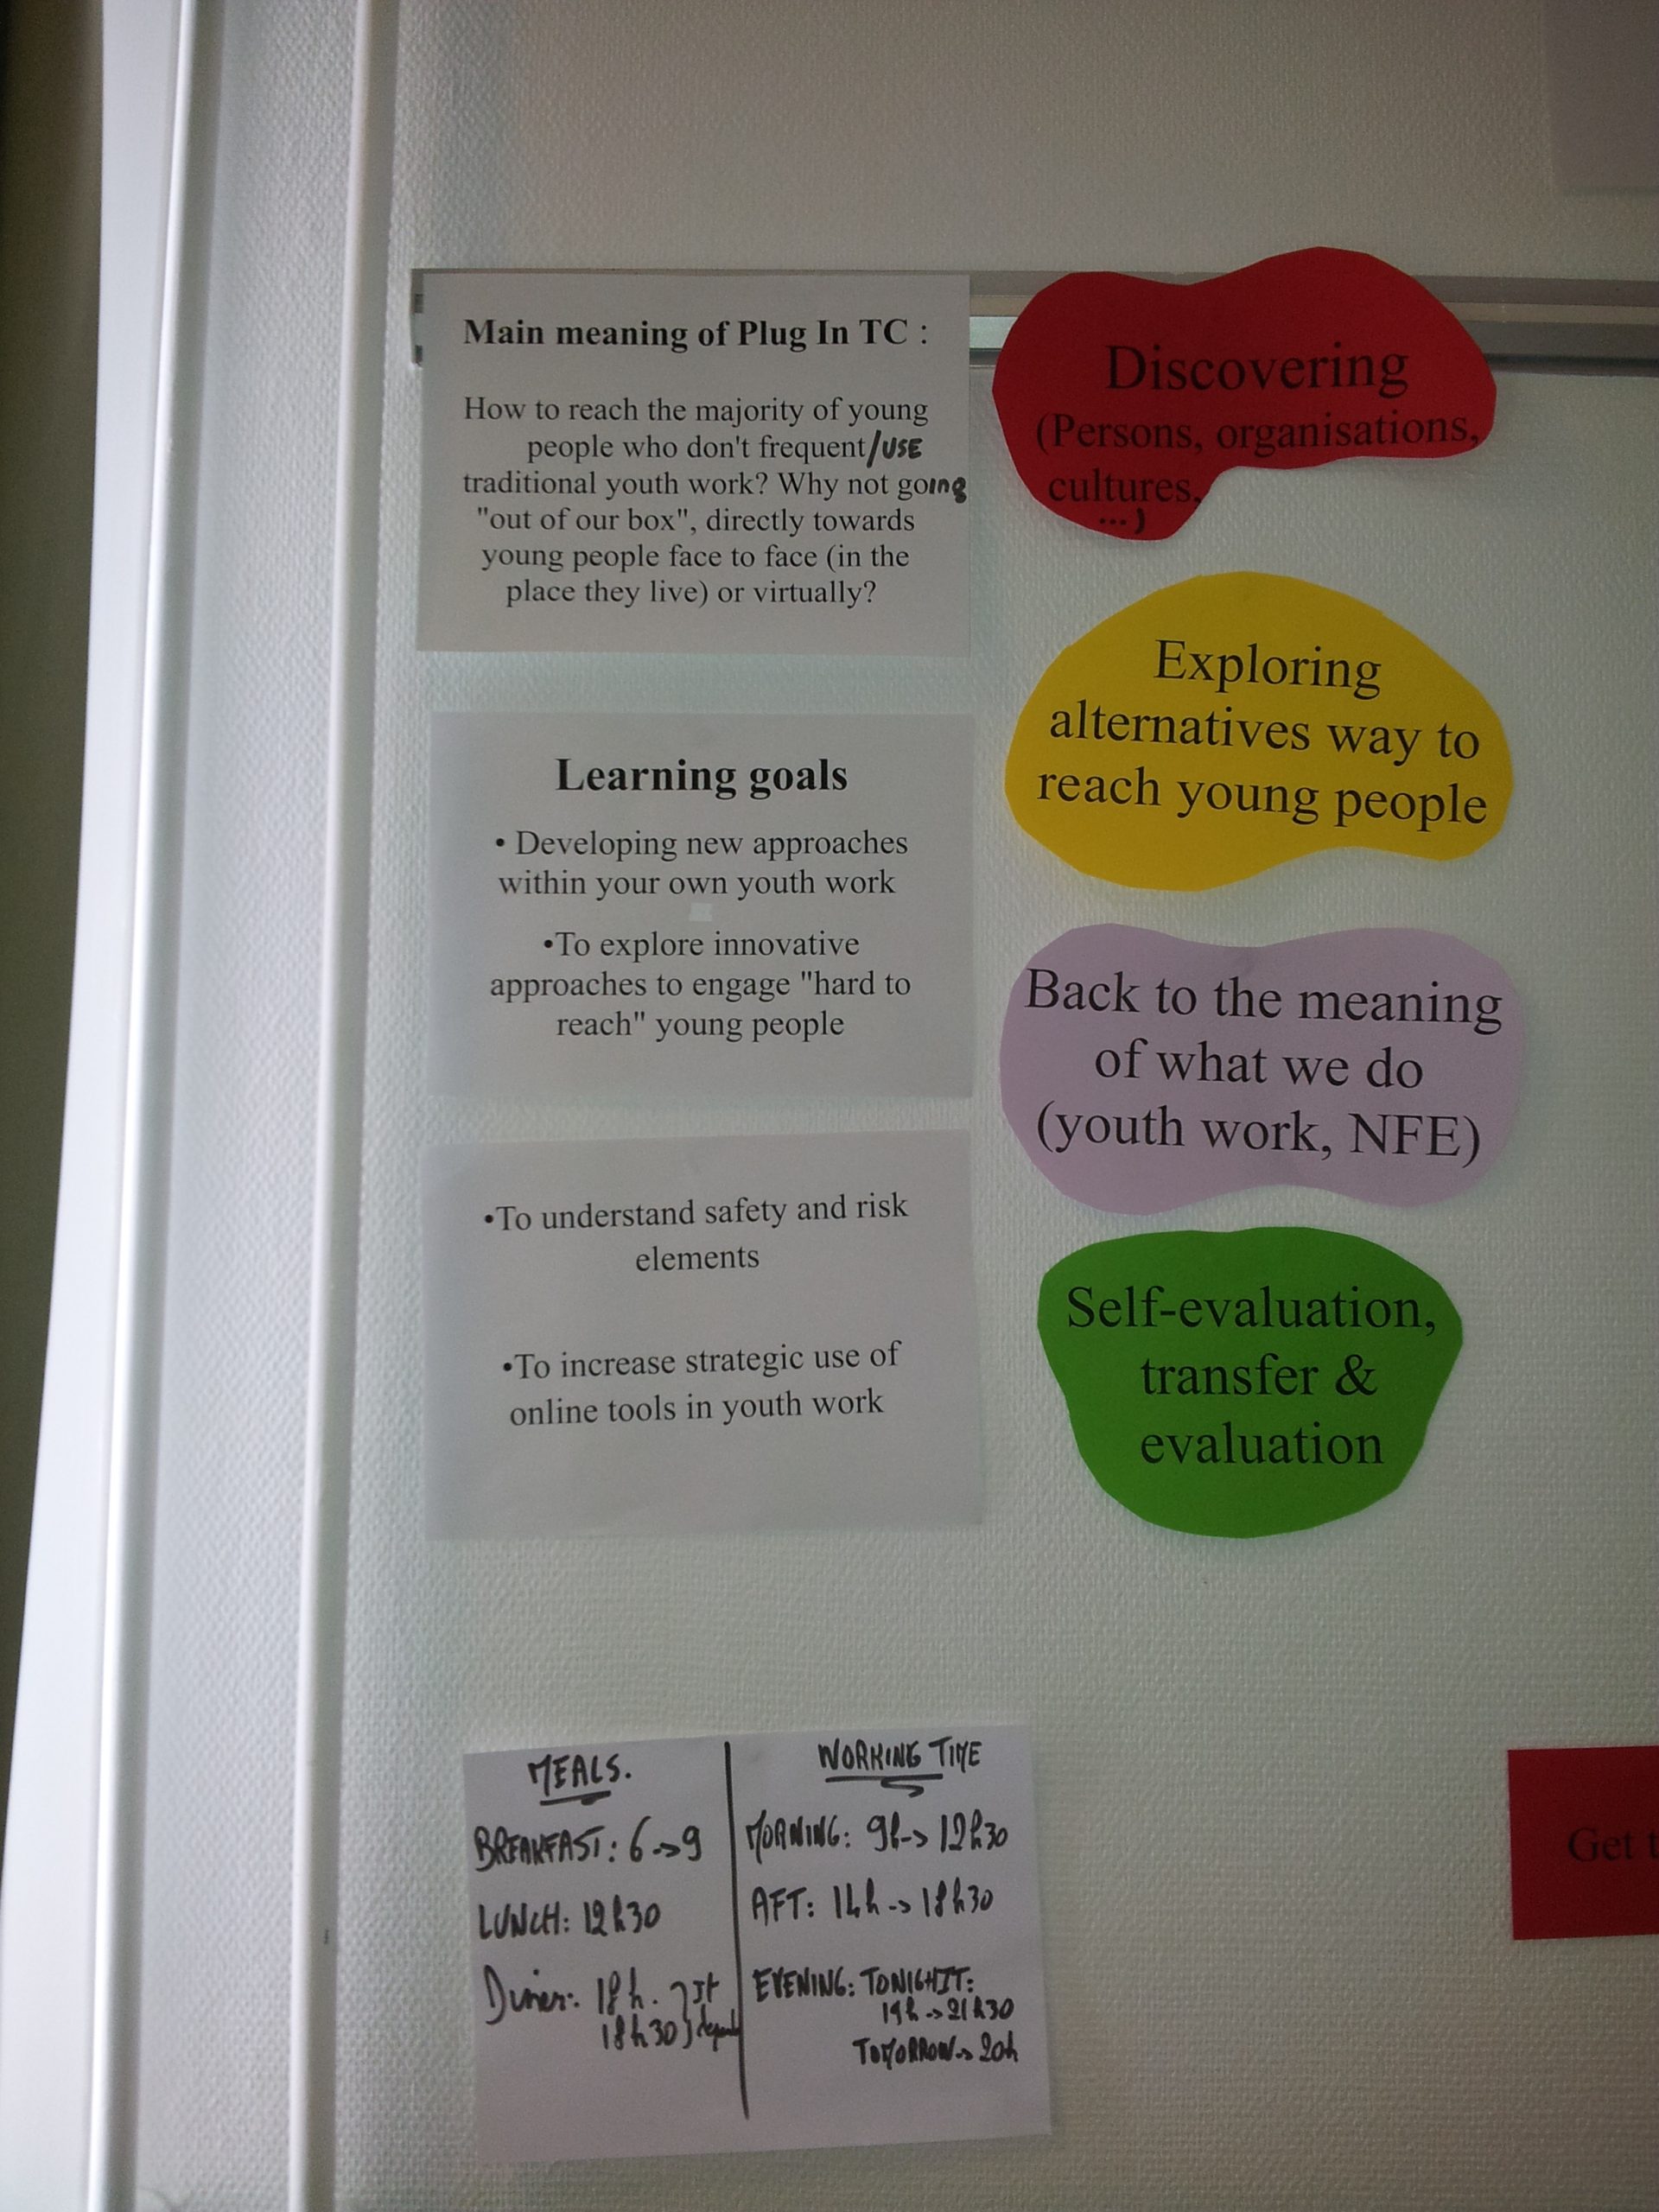 Main meaning of Plug In TC :
How to reach the majority of young
people who don't frequent/USE
traditional youth work? Why not going
"out of our box", directly towards
young people face to face (in the
place they live) or virtually?
Learning goals
• Developing new approaches
within your own youth work
•To explore innovative
approaches to engage "hard to
reach" young people
•To understand safety and risk
elements
•To increase strategic use of
online tools in youth work
Discovering
(Persons, organisations,
cultures,
...)
Exploring
alternatives way to
reach young people
Back to the meaning
of what we do
(youth work, NFE)
Self-evaluation,
transfer &
evaluation
MEALS.
BREAKFAST: 6 -> 9
LUNCH: 12h30
Diner: 18h. It
18h30
WORKING TIME
MORNING: 9h -> 12h30
AFT: 14h -> 18h30
EVENING: TONIGHT:
19h -> 21h30
TOMORROW -> 20h
Get t